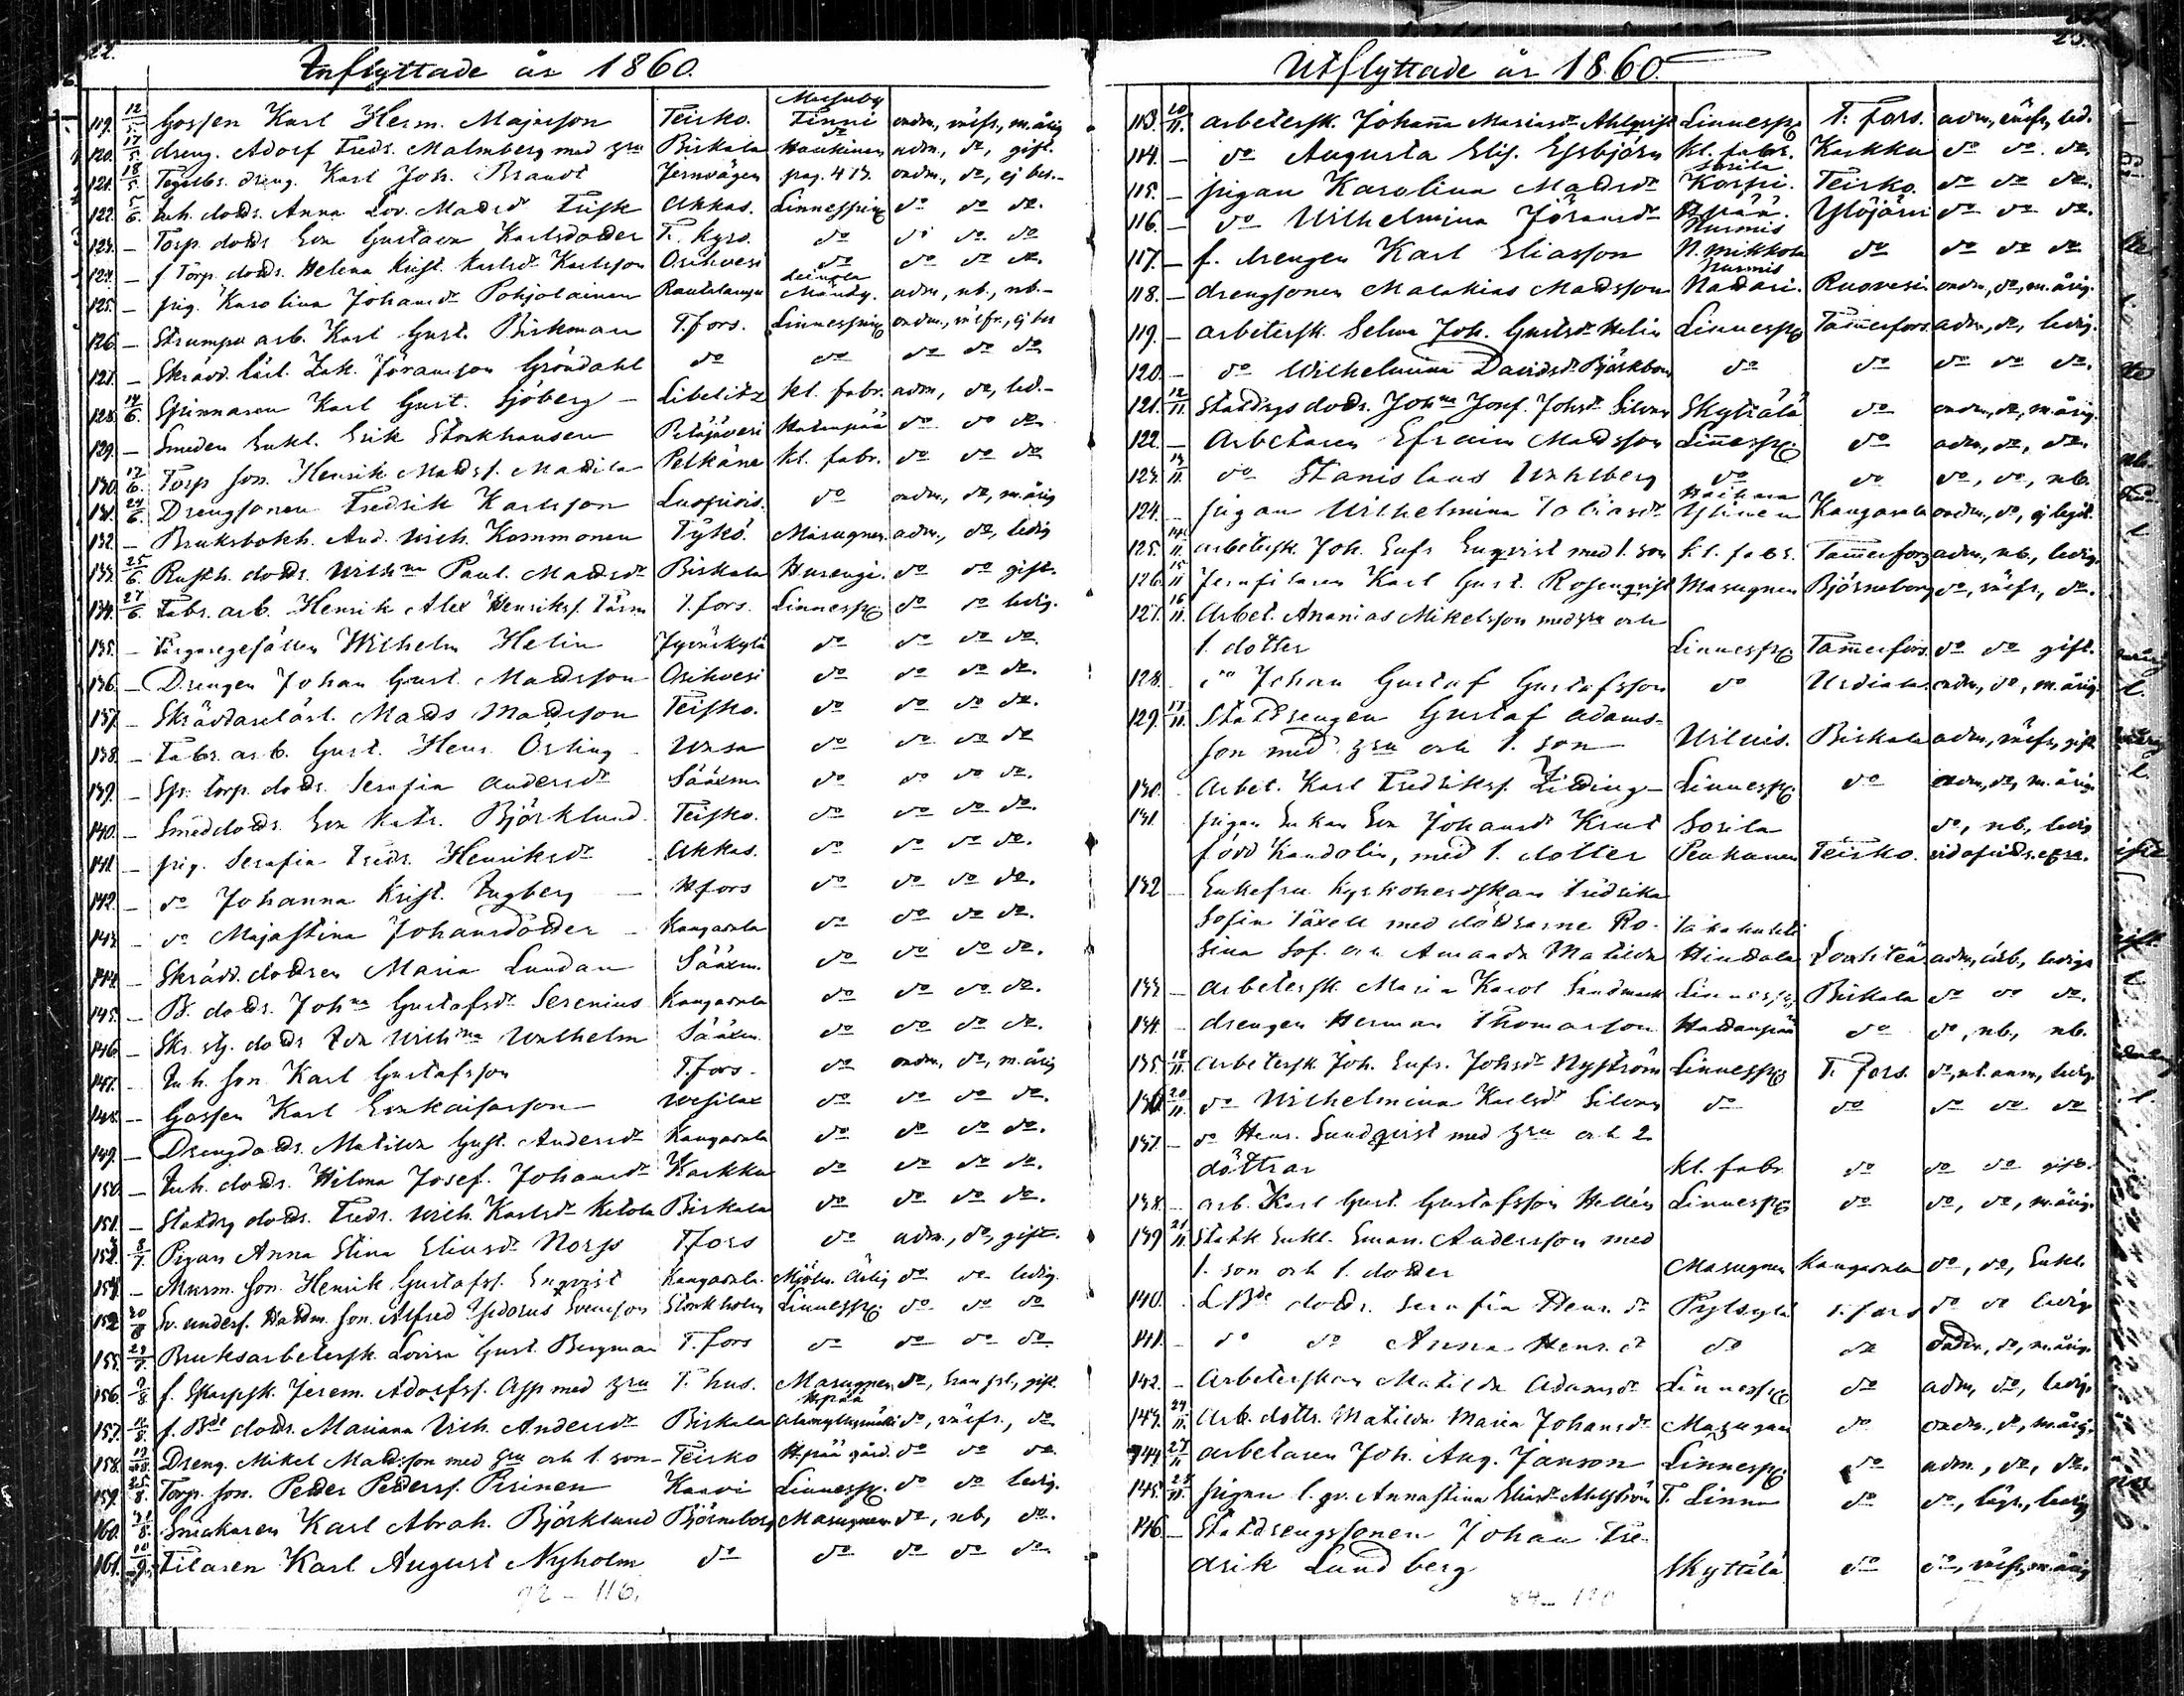 22.
Inflyttade år 1860.
119. 12/5 Gossen Karl Herm. Majasson Teisko. Messuby Finni ondm., växfr., m.årig
120. 17/5 dreng. Adolf Fredr. Malmberg med hru Birkala Haukinen adm, do, gift.
121. 18/5 dreng. Karl Joh. Brandt Jernvägen pag. 413. ondm., do, ej bes.
122. 5/6 Inh. dottr. Anna Lov. Madsdr Fisk Akkas. Linnespinn do do do.
123. – Torp. dottr Eva Gustava Karlsdotter T. Kyro. do do do do
124. – f Torp. dottr. Helena Krist. Karlsdr Karlsson Orihvesi do do do do.
125. – pig. Karolina Johansdr Pohjolainen Rautalampi Mändy. adm, nb., nb.
126. – Strumpv arb. Karl Gust. Birkman T.fors. Linnespinn ondm., växfr., ej bes
127. – Skrädd. lärl. Zak. Jöransson Gröndahl do do do do do
128. 14/6 Spinnaren Karl Gust. Sjöberg – Libelitz kl. fabr. adm, do, led.
129. – Smeden Enkl. Erik Stockhausen Petäjävesi Hatanpää do do do
130. 17/6 Torp son. Henrik Madsf. Madila Pelkäne kl. fabr. do do do
131. 24/6 Drengsonen Fredrik Karlsson do ondm, do, m.årig
132. – Bruksbokh. And. Wilh. Kommonen Tykö. Masugnen adm., do, ledig
133. 25/6 Rusth. dottr. Wilhna Paul. Madsdr Birkala do do gift.
134. 27/6 Fabr. arb. Henrik Alex Henriksf. Törn T.fors. Linnesp do do ledig.
135. – Färgaregesällen Wilhelm Helin Jyväskylä do do do do
136. – Drengen Johan Gust. Madsson Orihvesi do do do do.
137. – Skräddarelärl. Mads Madsson Teisko. do do do do.
138. – Fabr. arb. Gust. Henr. Östling Wasa do do do do
139. – Sp. torp. dottr. Serafia Andersdr Sääxm. do do do do.
140. – Smeddottr. Eva Katr. Björklund Teisko. do do do do.
141. – pig. Serafia Fredr. Henriksdr Akkas. do do do do.
142. – do Johanna Krist. Tugberg – Hfors do do do do.
143. – do Majastina Johansdotter – Kangasala do do do do.
144. – Skrädd. dottren Maria Lundan Sääxm. do do do do.
145. – B. dottr. Johna Gustafsdr Serenius Kangasala do do do do.
146. – Skr. dottr Eva Wilhna Wilhelm Sääxm. do do do do.
147. – Inh. son Karl Gustafsson T.fors. do ondm, do, m.årig
148. – Gossen Karl Evakaisasson Wesilax do do do do.
149. – Drengdottr. Matilda Gust. Andersdr Kangasala do do do do.
150. – Inh. dottr. Hilma Josef. Johansdr Karkku do do do do.
151. – Statdrg dottr. Fredr. Wilh. Karlsdr Ketola Birkala do do do do.
152. 8/7 Pigan Anna Stina Eliasdr Norrs T.fors do adm, do, gift.
153. – Murm. son. Henrik Gustafsf. Enqvist Kangasala. do do ledig.
152 20/8 Sv. unders. Handtm. son. Alfred Isidorus Svensson Stockholm Linnesp. do do do
155. Bruksarbetersk. Lovisa Gust. Bergman T.fors do do do do
156. 9/8 f. Skarpsk. Jerem. Adolfsf. Asp med hru T. hus. Masugnen do, gift.
157. f. Bde dottr. Mariana Wilh. Andersdr Birkala do, växfr., do
158. Dreng. Mikel Madsson med hru och 1. son – Teisko Hpää gård. do do do
159. 25/8 Torp. son. Petter Pettersf. Pirinen Kaavi Linnesp. do do ledig.
160. Smakaren Karl Abrah. Björklund Björneborg Masugnen do, nb, do.
161. 10/9 Filaren Karl August Nyholm do do do do do
92 – 116.
Utflyttade år 1860.
113. 10/11. arbetersk. Johanna Mariasdr Ahlqvist Linnesp T. fors. adm, växfr, led.
114. – do Augusta Elis. Essbjörn kl. fabr. Karkku do do do
115. – pigan Karolina Madsdr Sorila Korpi. Teisko. do do do.
116. – do Wilhelmina Jöransdr Ylöjärvi do do do.
117. – f. drengen Karl Eliasson Nurmis N. Mikkola do do do do
118. – drengsonen Malakias Madsson Nurmis Nattari. Ruovesi ondm, do, m.årig.
119. – arbetersk. Selma Joh. Gustsdr Helin Linnesp Tammerfors adm, do, ledig.
120. – do Wilhelmina Davidsdr Björkbom do do do do do.
121. 12/11. Statdrgs dottr. Johna Josef. Johsdr Silvan Skyttälä do ondm, do, m.årig.
122. – Arbetaren Efraim Madsson Linnesp do adm, do, do.
123. 13/11. do Stanislaus Wahlberg do do do, do, nb.
124. – pigan Wilhelmina Tobiasdr Ylinen Kangasala ondm, do, ej
125. 14/11. arbetersk. Joh. Eufr. Enqvist med 1. son kl. fabr. Tammerfors adm, nb, ledig.
126. 15/11 Karl Gust. Rosenqvist Masugnen Björneborg do, växfr, do.
127. 16/11. Arbet. Ananias Mikelsson med hru och
1. dotter Linnesp Tammerfors. do do gift.
128. do Johan Gustaf Gustafsson do Urdiala ondm, do, m.årig.
129. 17/11. Statdrengen Gustaf Adams-
son med hru och 1. son Birkala adm, växfr, gift.
130. Arbet. Karl Fredriksf. Lilding – Linnesp. do ondm, do, m.årig.
131. pigan Enkan Eva Johansdr Krut Sorila do, nb., ledig
född Kandolin, med 1. dotter Teisko.
132 – Enkefru Fredrika
Sofia Taxell med döttrarne Ro-
sina Sof. och Amanda Matilda Hindala adm, ledige
133 – arbetersk. Maria Karol Sandmark Linnesp Birkala do do do.
134. – drengen Herman Thomasson Hattanpää do do, nb, nb.
135. 18/11. Arbetersk. Joh. Eufr. Johsdr Nyström Linnesp T. fors. do, ledig.
136 20/11. do Wilhelmina Karlsdr Silvan do do do do do
137. – do Henr. Sundqvist med hru och 2
döttrar kl. fabr. do do do gift.
138. – arb. Karl Gust. Gustafsson Hellén Linnesp do do, do, m.årig.
139 21/11. Statk Enkl. Eman. Andersson med
1. son och 1. dotter Masugnen Kangasala do, do, Enkl.
140. LBde dottr. Serafia Henr. dr T.fors do do ledig
141. – do do Anna Henr. dr do do ondm, do, m.årig.
142. – Arbeterskan Matilda Adamsdr Linnesp do adm, do, ledig.
143. 24/11. Arb. dottr. Matilda Maria Johansdr Masugnen do ondm, do, m.årig.
144 27/11 arbetaren Joh. Aug. Janson Linnesp. do adm., do, do.
145. 28/11. pigan Annastina Eliasdr Ahlström T. Linna do do, ledig
146 – Statdrengssonen Johan Fre-
drik Lundberg Skyttälä do do, växfr, m.årig